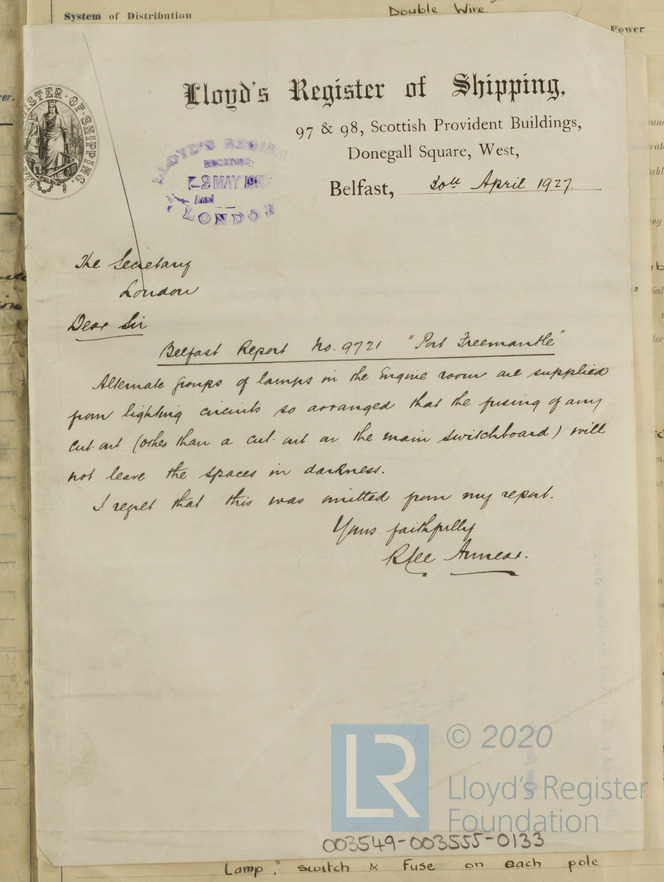 System of Distribution
Double Wire.
Power
Lloyd's Register of Shipping,
97 & 98, Scottish Provident Buildings,
Donegall Square, West,
Belfast, 30th April 1927
LLOYD'S REGIS
RECEIVED
-2 MAY 192
LONDON
The Secretary
London
Dear Sir
Belfast Report No. 9721 "Port Freemantle"
Alternate groups of lamps in the Engine room are supplied
from lighting circuits so arranged that the fusing of any
cut-out (other than a cut out on the main switchboard) will
not leave the spaces in darkness.
I regret that this was omitted from my report.
Yours faithfully
Annear.
LR
© 2020
Lloyd's Register
Foundation
003549-003555-0133
Lamp, switch & Fuse on each pole